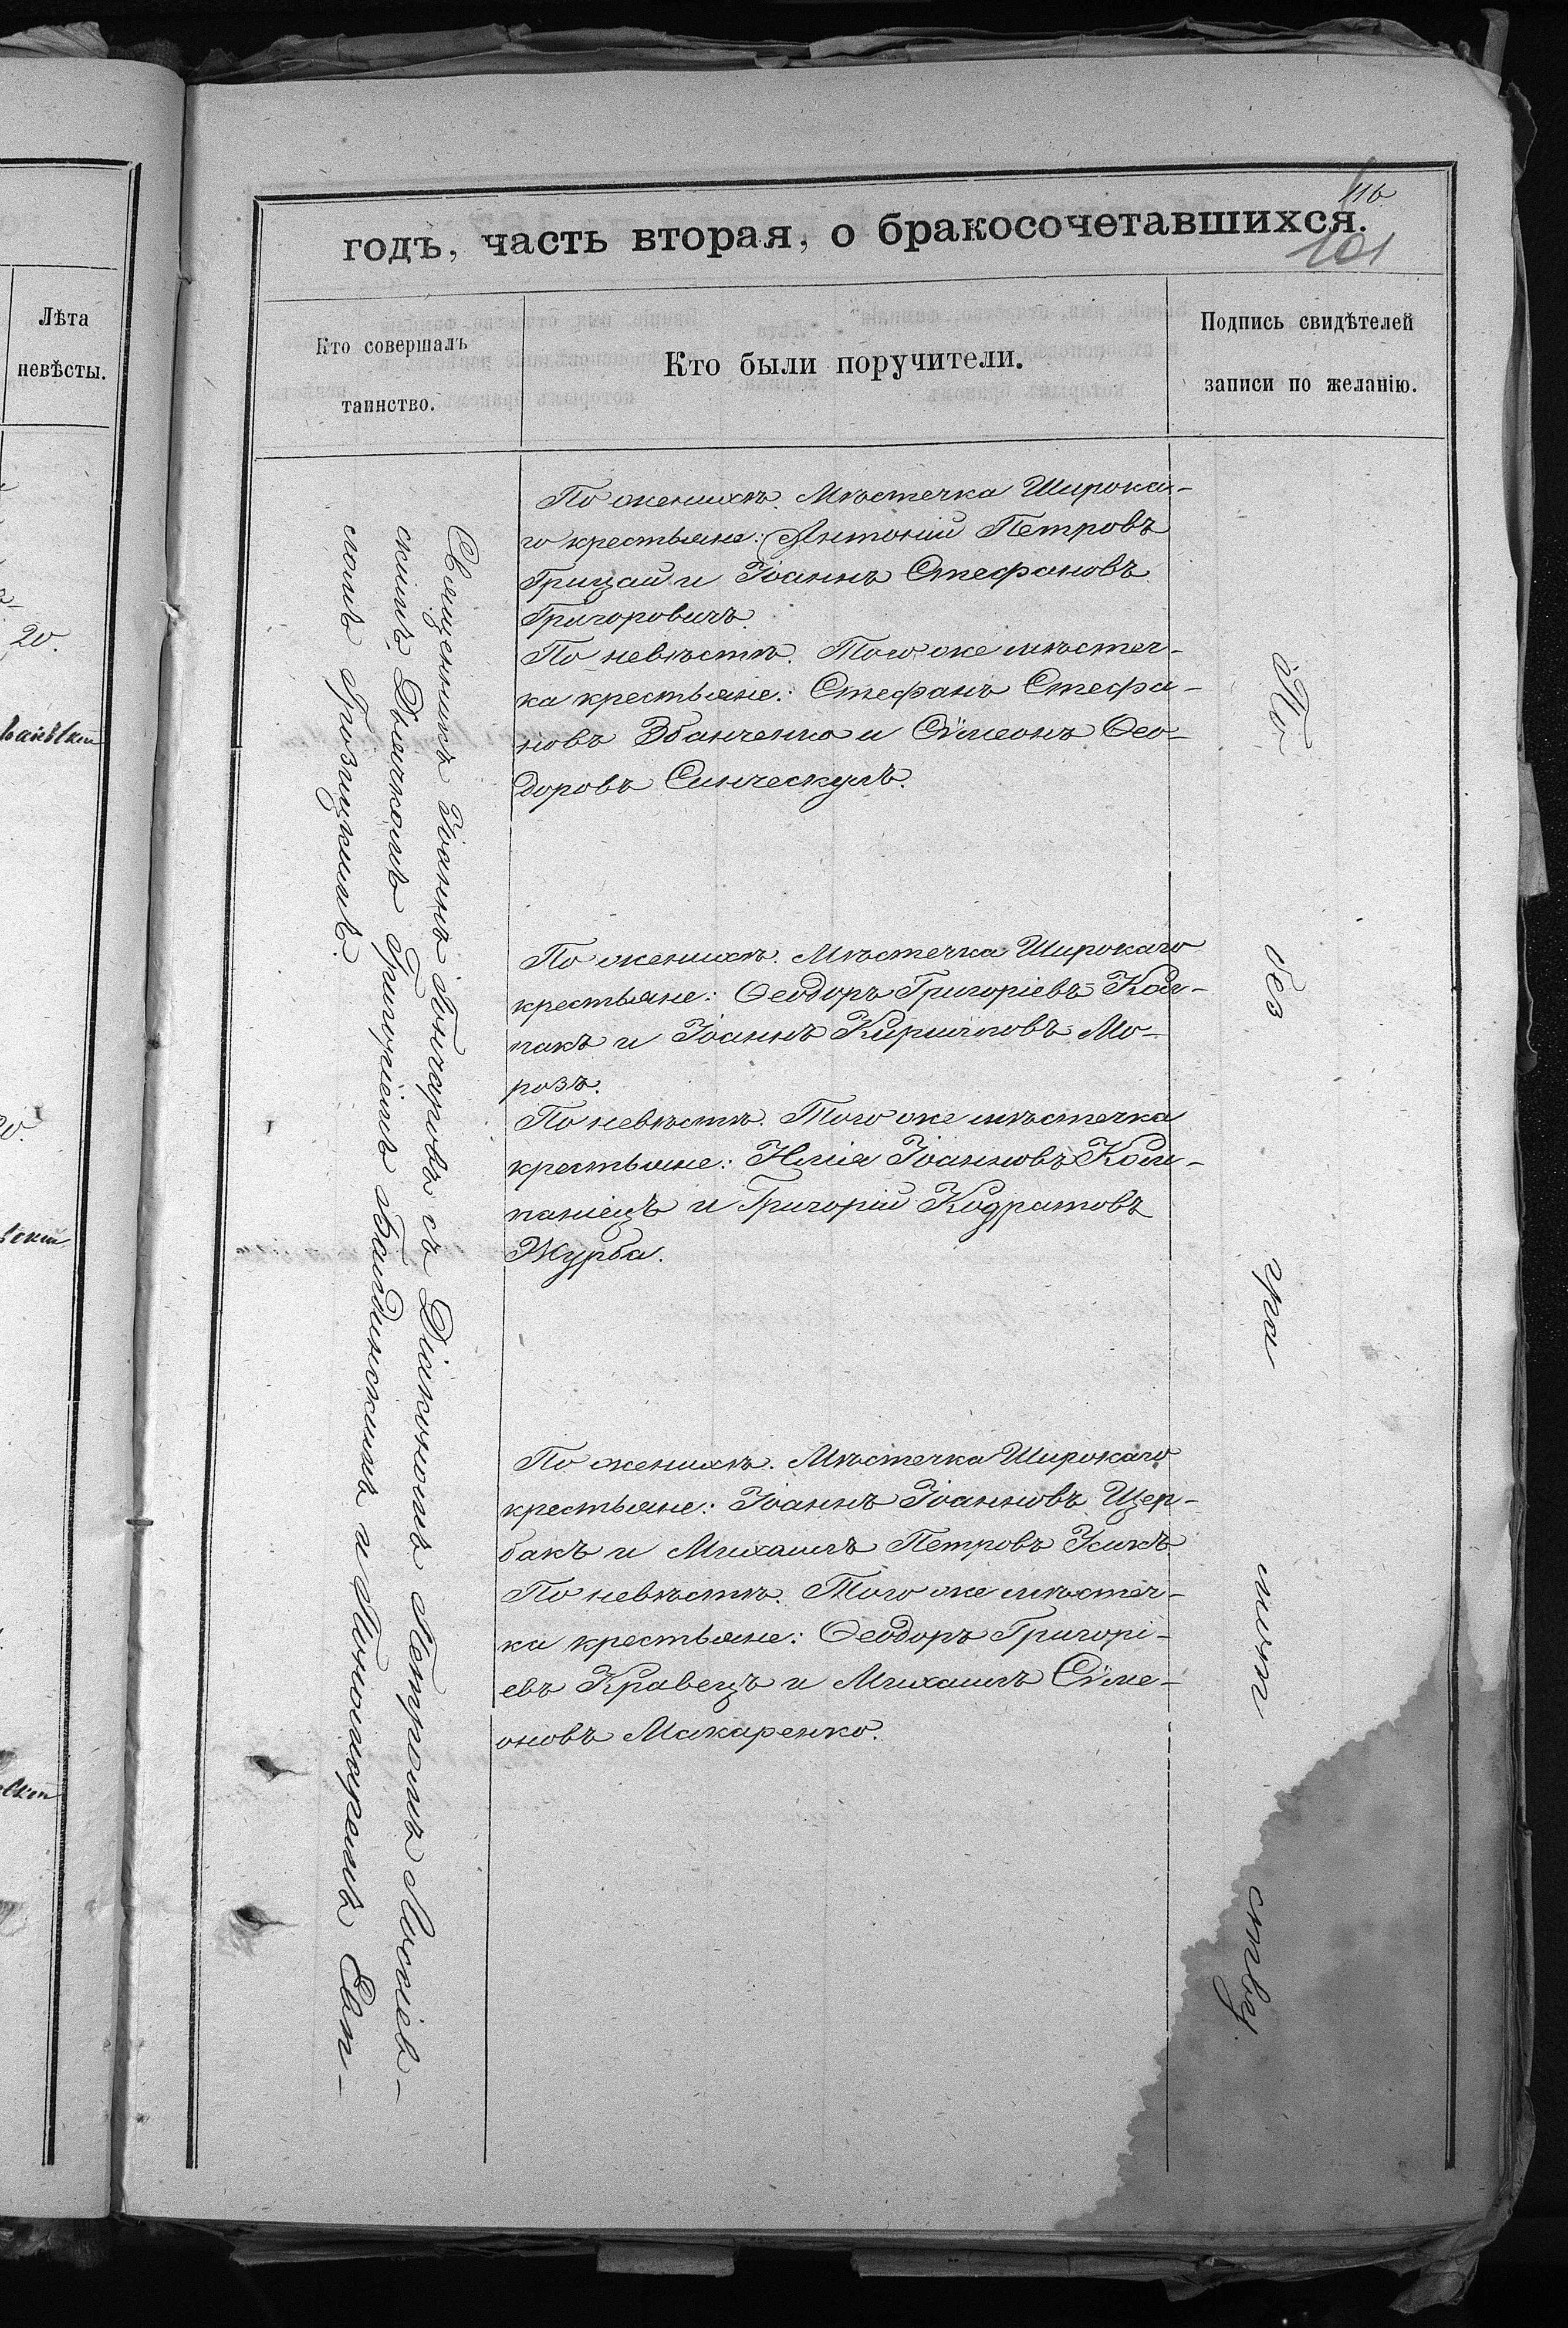 116
годъ, часть вторая, о бракосочетавшихся.
101
Лѣта
невѣсты.
20.
Кто совершалъ
таинство.
Кто были поручители.
Подпись свидѣтелей
записи по желанію.
Священникъ Іоаннъ Гончаровъ съ Діакономъ Петромъ
скимъ, Дьячкомъ Григоріемъ и Пономаремъ Евп-
ломъ Грозицкимъ.
По женихѣ. Мѣстечка Широка-
го крестьяне: Антоній Петровъ
Грицай и Іоаннъ Стефановъ
Григоровичъ.
По невѣстѣ. Того же мѣстеч-
ка крестьяне: Стефанъ Стефа-
новъ Збанченко и Сѵмеонъ Ѳео-
доровъ
По женихѣ. Мѣстечка Широкаго
крестьяне: Ѳеодоръ Григоріевъ Кол-
пакъ и Іоаннъ Кирилловъ Мо-
розъ.
По невѣстѣ. Того же мѣстечка
крестьяне: Илія Іоанновъ Ком-
паніецъ и Григорій Кодратовъ
Журба.
По женихѣ. Мѣстечка Широкаго
крестьяне: Іоаннъ Іоанновъ Щер-
бакъ и Михаилъ Петровъ Усикъ.
По невѣстѣ. Того же мѣстеч-
ка крестьяне: Ѳеодоръ Григорі-
евъ Кравецъ и Михаилъ Сѵме-
оновъ Макаренко.
По
без
гра
мот
ству.